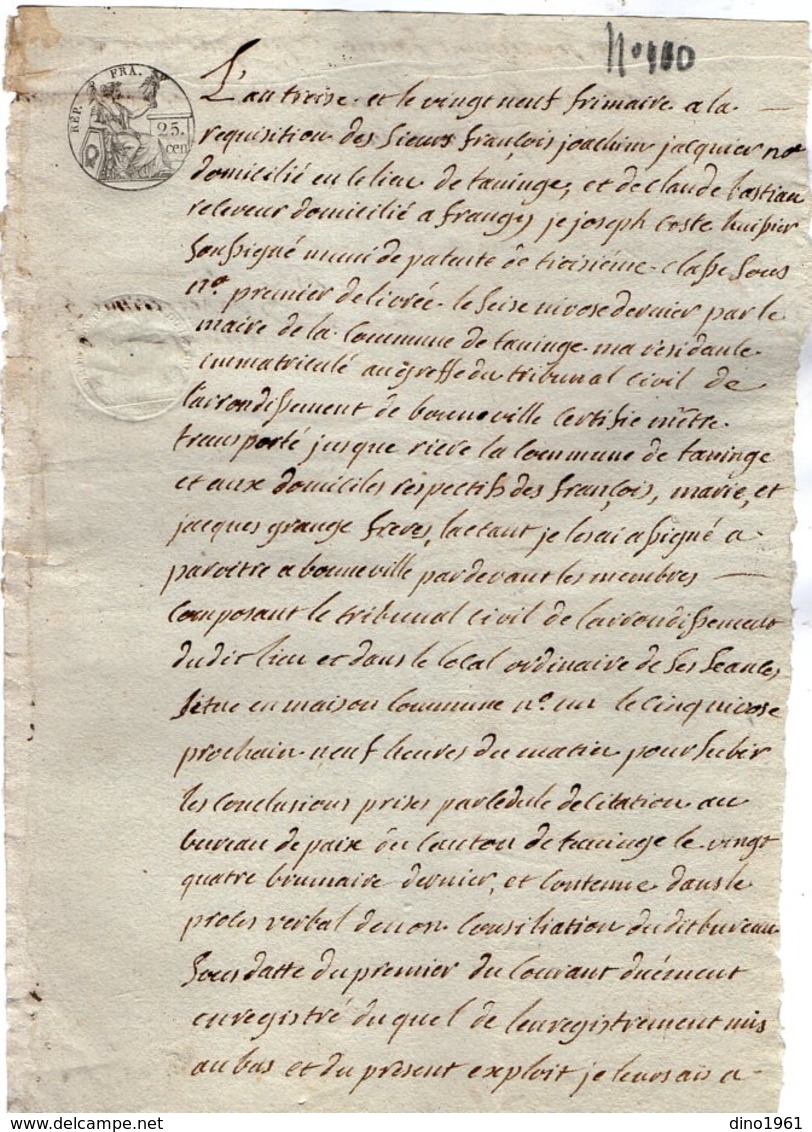 N° 100
RÉP. FRA.
25.
cen
L'an treise et le vingt neuf frimaire a la
requisition des Sieurs françois joachim jacquier nore
domicilié en le lieu de taninge, et de claude bastian
releveur domicilié a frangy, je joseph Coste huissier
soussigné muni de patente de troisiéme classe sous
n.o premier delivrée le seise nivose dernier par le
maire de la Commune de taninge ma residence
immatriculé au greffe du tribunal civil de
l'arrondissement de bonneville Certifie m'être
transporté jusque riere la Commune de taninge
et aux domiciles respectifs des françois, marie, et
jacques grange freres, la etant je les ai assigné a
paroitre a bonneville par devant les membres
Composant le tribunal civil de l'arrondissement
du dit lieu et dans le local ordinaire de ses seances
situe en maison Commune n.o un le cinq nivose
prochain neuf heures du matin pour subir
les Conclusions prises par Cedule de Citation au
bureau de paix du Canton de taninge le vingt
quatre brumaire dernier, et Contenue dans le
proces verbal de non Consiliation du dit bureau
sous datte du premier du Courant duément
enregistré du quel de l'enregistrement mis
au bas et du present exploit je leurs ais a
dino1961